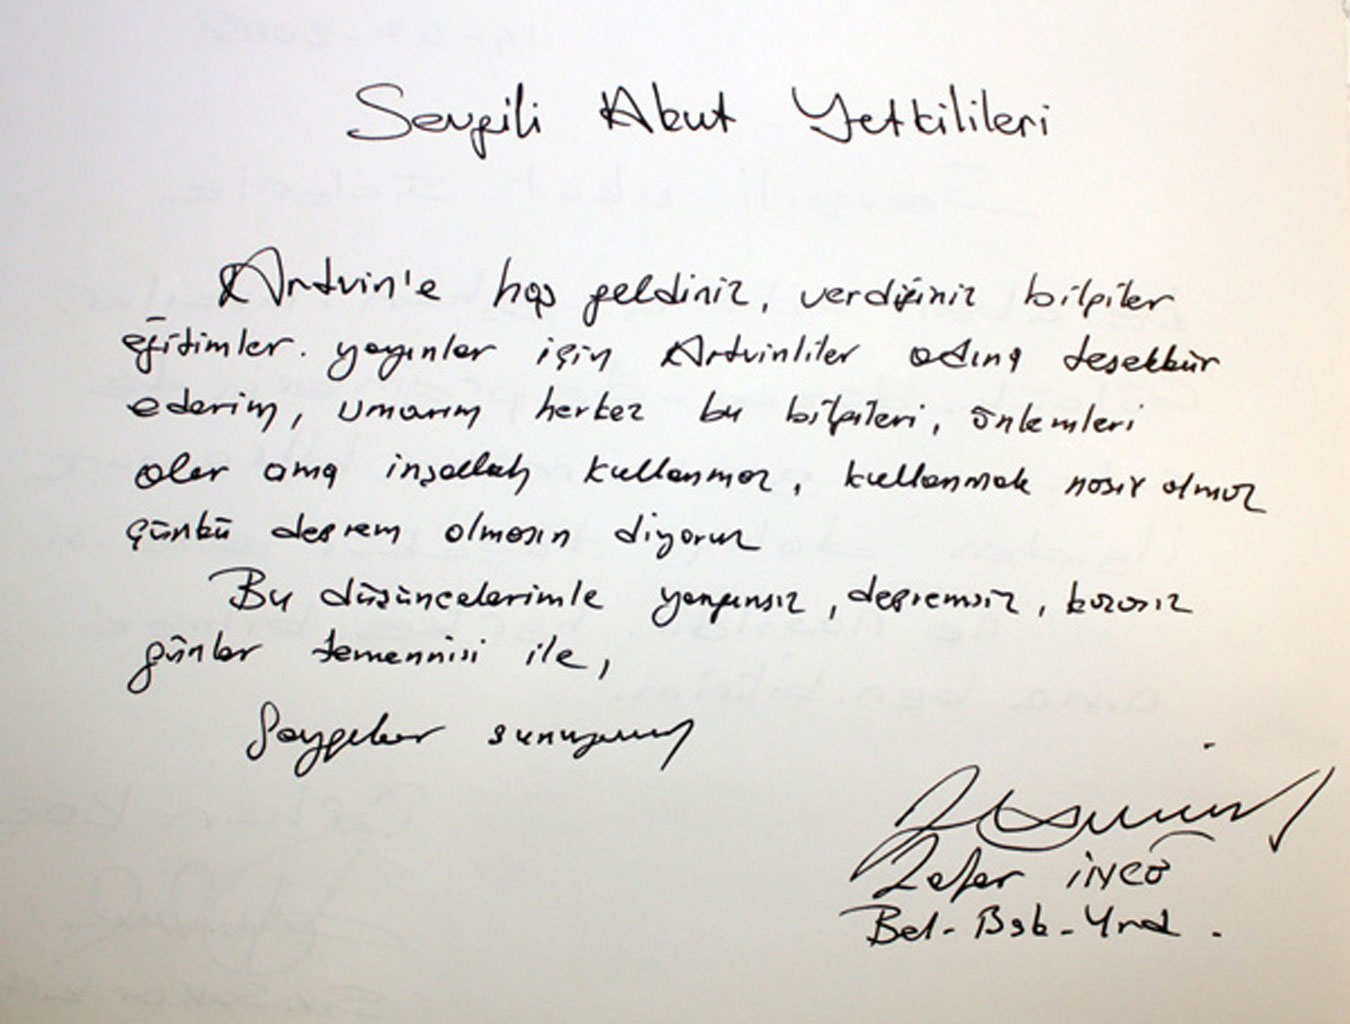 Sevgili Akut Yetkilileri
Artvin'e hoş geldiniz, verdiğiniz bilgiler
eğitimler. yayınlar için Artvinliler adına teşekkür
ederim, umarım herkez bu bilgileri, önlemleri
alar ama inşallah kullanmaz, kullanmak nasip olmaz
çünkü deprem olmasın diyoruz
Bu düşüncelerimle yangınsız, depremsiz, kazasız
günler temennisi ile,
Saygılar sunuyorum
Zafer
Bel-Bşk-Yrd.